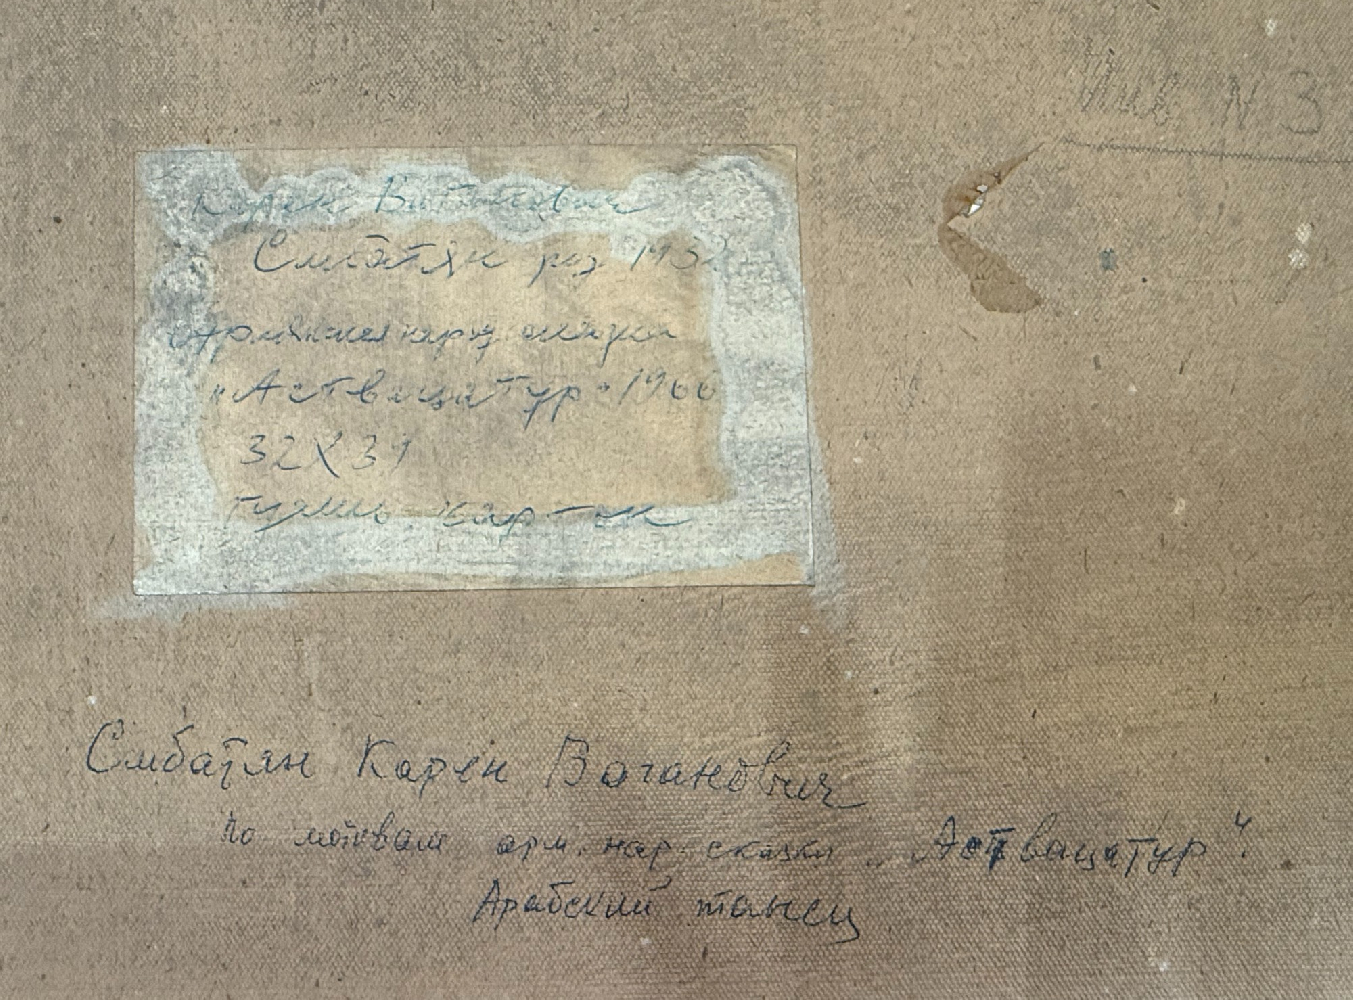 Инв N 3
Карен Ваганович
Смбатян род 1932
Армянская народ сказка
„Аствацатур" 1966
32X39
тушь. картон
Смбатян Карен Ваганович
по мотивам арм. нар. сказки „Аствацатур“
Арабский танец